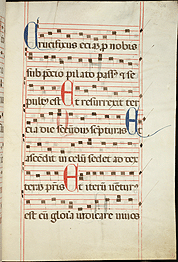 Crucifixus eciã p nobis
sub pōcio pilato pass᷒ ⁊ se
pult᷒ est Et resurrexit ter
cia die secūdū scpturas Et
ascendit in celū sedet ad dex
terā pris Et iterū uētur᷒
est cū glīa iudicare uiuos